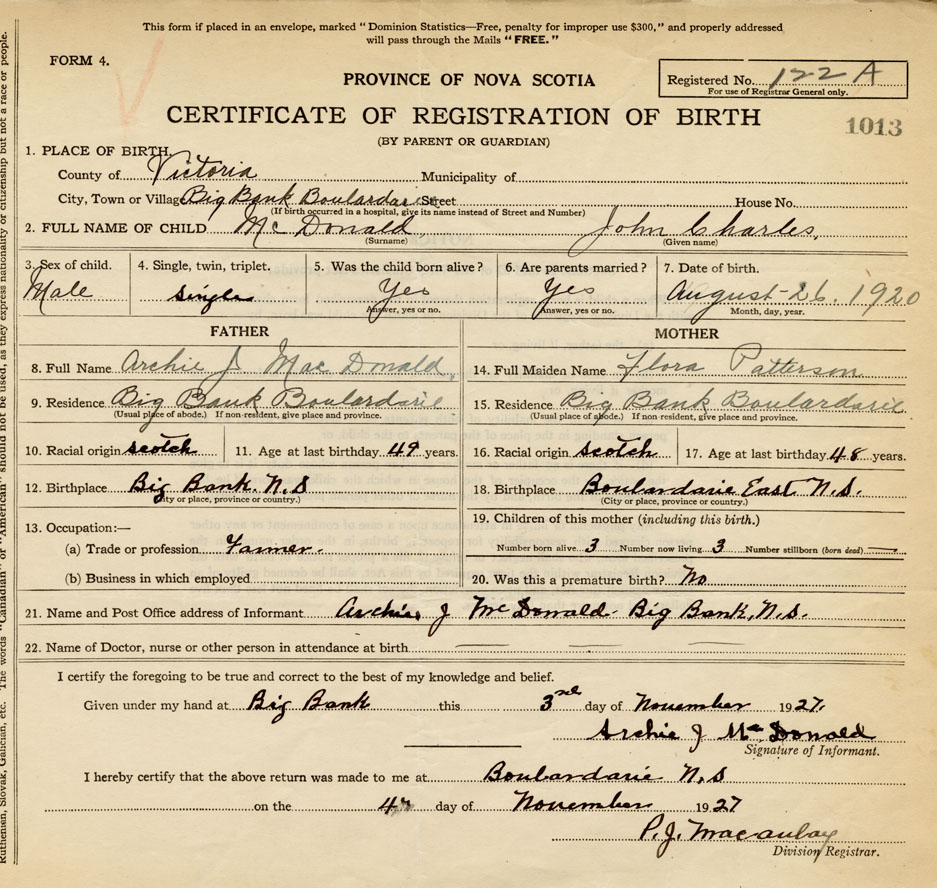 This form if placed in an envelope, marked "Dominion Statistics—Free, penalty for improper use $300," and properly addressed
will pass through the Mails "FREE."
FORM 4.
PROVINCE OF NOVA SCOTIA
Registered No. 122 A
For use of Registrar General only.
CERTIFICATE OF REGISTRATION OF BIRTH
1013
(BY PARENT OR GUARDIAN)
1. PLACE OF BIRTH
County of Victoria Municipality of
City, Town or Village Big Bank Boulardarie Street House No.
(If birth occurred in a hospital, give its name instead of Street and Number)
2. FULL NAME OF CHILD Mc Donald, John Charles,
(Surname) (Given name)
3. Sex of child. 4. Single, twin, triplet. 5. Was the child born alive? 6. Are parents married? 7. Date of birth.
Male single Yes Yes August-26. 1920
Answer, yes or no. Answer, yes or no. Month, day, year.
FATHER MOTHER
8. Full Name Archie J Mac Donald, 14. Full Maiden Name Flora Patterson
9. Residence Big Bank Boulardarie 15. Residence Big Bank Boulardarie
(Usual place of abode.) If non-resident, give place and province. (Usual place of abode.) If non-resident, give place and province.
10. Racial origin scotch 11. Age at last birthday 49 years. 16. Racial origin scotch 17. Age at last birthday 48 years.
12. Birthplace Big Bank. N.S 18. Birthplace Boulardarie East N.S.
(City or place, province or country.) (City or place, province or country.)
13. Occupation:— 19. Children of this mother (including this birth.)
(a) Trade or profession Farmer. Number born alive 3 Number now living 3 Number stillborn (born dead) —
(b) Business in which employed 20. Was this a premature birth? No
21. Name and Post Office address of Informant Archie J McDonald Big Bank, N.S.
22. Name of Doctor, nurse or other person in attendance at birth — — —
I certify the foregoing to be true and correct to the best of my knowledge and belief.
Given under my hand at Big Bank this 3rd day of November 1927.
Archie J McDonald
Signature of Informant.
I hereby certify that the above return was made to me at Boulardarie N.S
on the 4th day of November 1927
P.J. Macaulay
Division Registrar.
Ruthenian, Slovak, Galician, etc. The words "Canadian" or "American" should not be used, as they express nationality or citizenship but not a race or people.